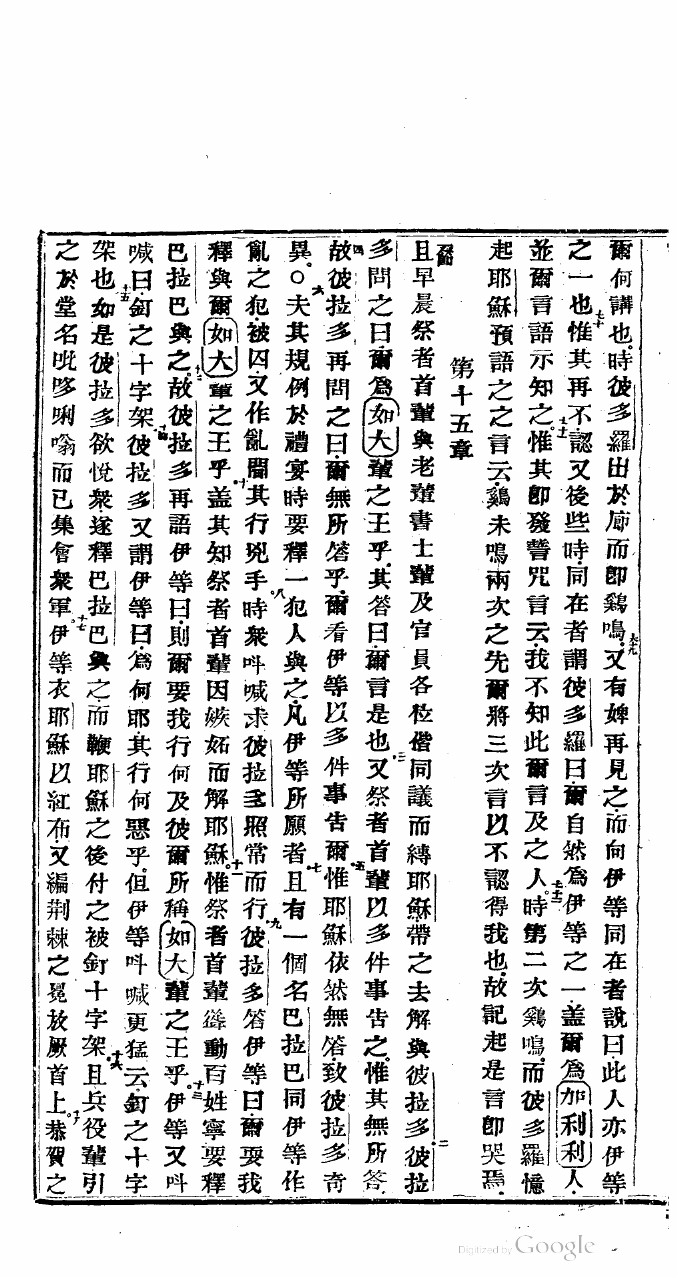 爾何講也。時彼多羅出於廊而卽鷄鳴。又有婢再見之而向伊等同在者說曰此人亦伊等
之一也惟其再不認又後些時同在者謂彼多羅曰爾自然爲伊等之一盖爾爲加利利人
並爾言語示知之惟其卽發誓咒言云我不知此爾言及之人。時第二次鷄鳴而彼多羅憶
起耶穌預語之之言云鷄未鳴兩次之先爾將三次言以不認得我也故記起是言卽哭焉
第十五章
且早晨祭者首輩與老輩書士輩及官員各位偕同議而縛耶穌帶之去解與彼拉多彼拉
多問之曰爾爲如大輩之王乎其答曰爾言是也又祭者首輩以多件事告之惟其無所答
故彼拉多再問之曰爾無所答乎爾看伊等以多件事告爾惟耶穌依然無答致彼拉多奇
異。○夫其規例於禮宴時要釋一犯人與之凡伊等所願者且有一個名巴拉巴同伊等作
亂之犯被囚又作亂間其行兇手時衆呌喊求彼拉多照常而行彼拉多答伊等曰爾要我
釋與爾如大輩之王乎盖其知祭者首輩因嫉妬而解耶穌惟祭者首輩聳動百姓寧要釋
巴拉巴與之故彼拉多再語伊等曰則爾要我行何及彼爾所稱如大輩之王乎伊等又呌
喊曰釘之十字架彼拉多又謂伊等曰爲何耶其行何惡乎但伊等呌喊更猛云釘之十字
架也如是彼拉多欲悅衆遂釋巴拉巴與之而鞭耶穌之後付之被釘十字架且兵役輩引
之於堂名吡哆唎嗡而已集會衆軍伊等衣耶穌以紅布又編荆棘之冕放厥首上恭賀之
Digitized by Google